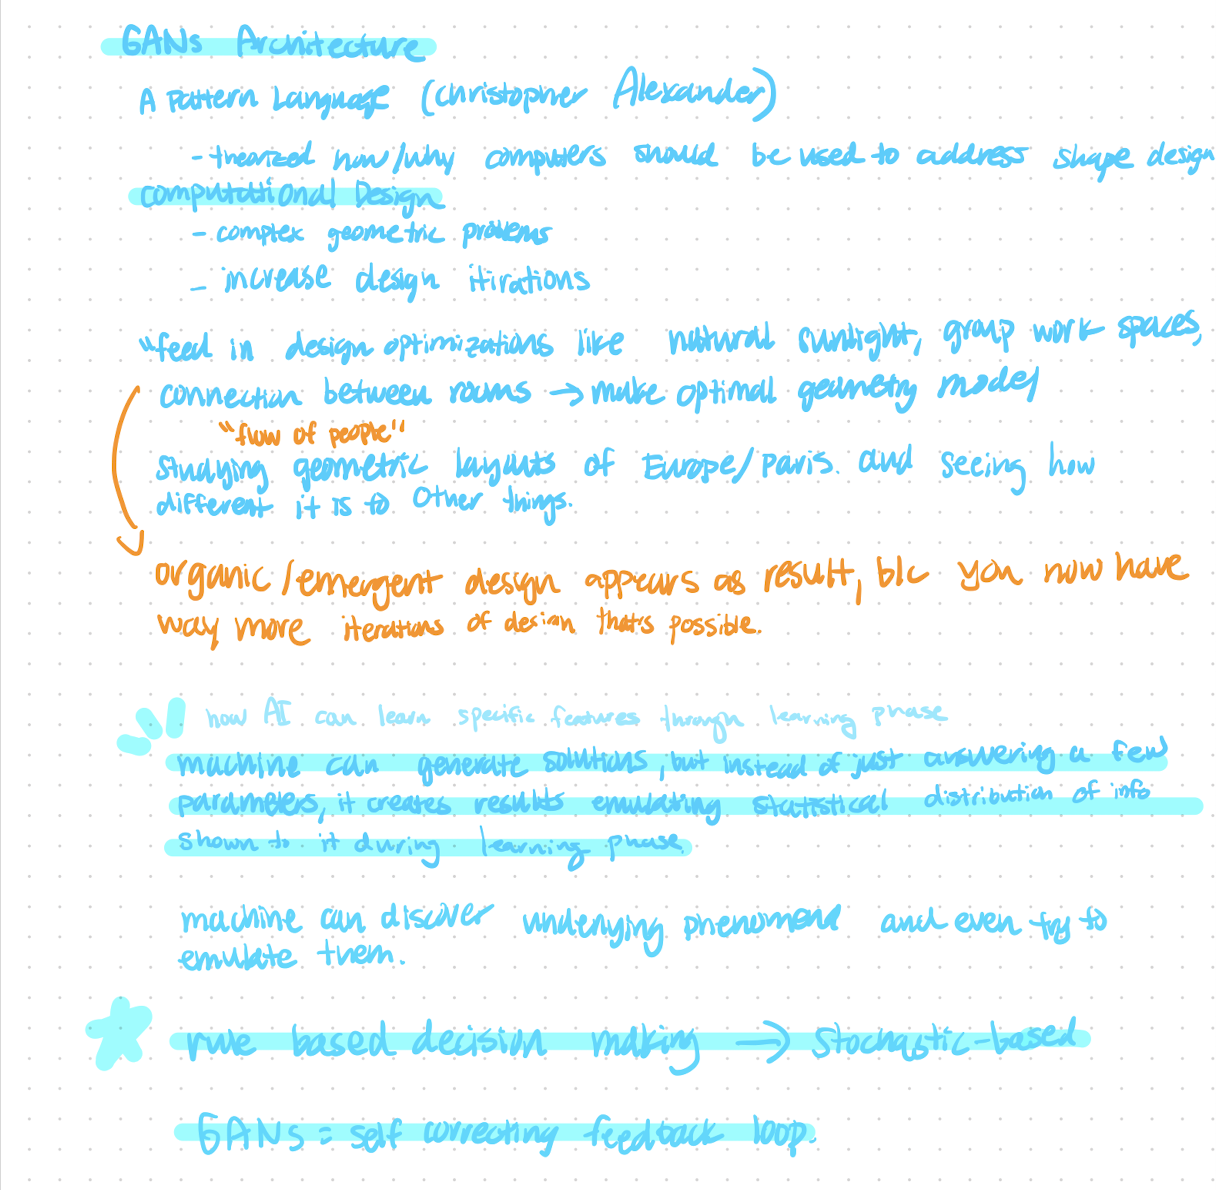 GANs Architecture
A Pattern Language (Christopher Alexander)
- theorized how/why computers should be used to address shape design
computational Design
- complex geometric problems
- increase design itirations
"feed in design optimizations like natural sunlight, group work spaces,
connection between rooms → make optimal geometry model
"flow of people"
studying geometric layouts of Europe/Paris. and seeing how
different it is to other things.
organic/emergent design appears as result, b/c you now have
way more iterations of design that's possible.
how AI can learn specific features through learning phase
machine can generate solutions, but instead of just answering a few
parameters, it creates results emulating statistical distribution of info
shown to it during learning phase.
machine can discover underlying phenomena and even try to
emulate them.
rule based decision making → stochastic-based
GANs = self correcting feedback loop.